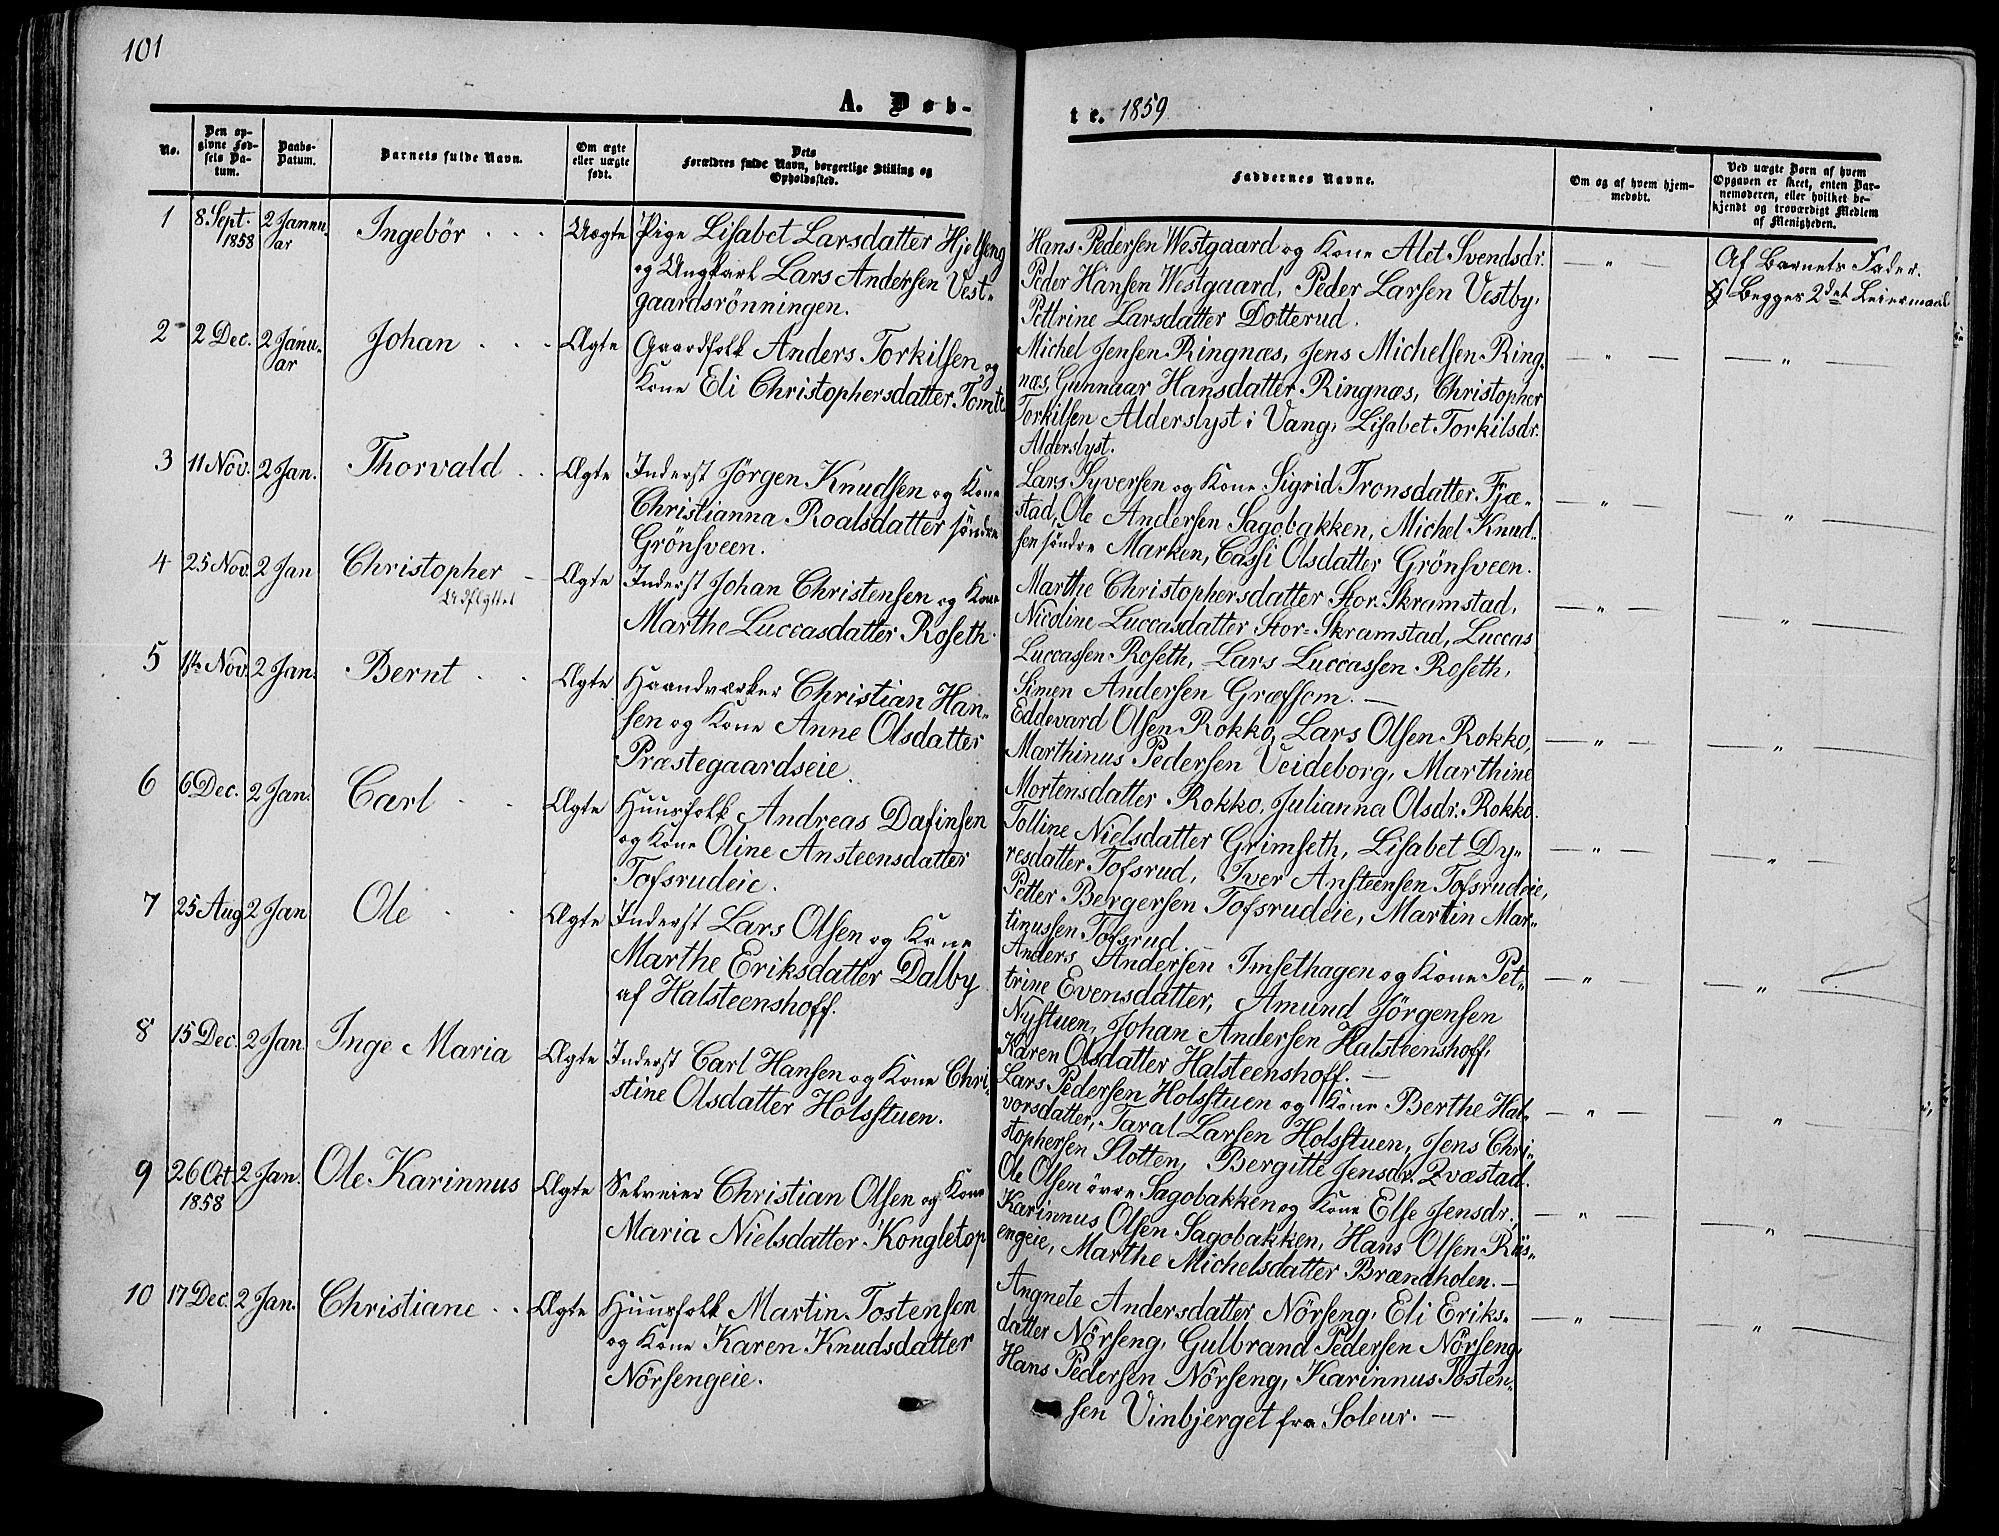 101
A. Døb-
No.
Den op-
givne Fød-
sels Da-
tum.
Daabs-
Datum.
Barnets fulde Navn.
Om ægte
eller uægte
født.
Dets
Forældres fulde Navn, borgerlige Stilling og
Opholdssted.
1 8 Sept. 1858 2 Janu-
ar Ingebör Uægte Pige Lisabet Larsdatter Hjelseng
og Ungkarl Lars Andersen Vest-
gaardsrönningen.
2 2 Dec. 2 Janu-
ar Johan Ægte Gaardfolk Anders Torkilsen og
Kone Eli Christophersdatter Tomte
3 11 Nov. 2 Jan. Thorvald Ægte Inderst Jörgen Knudsen og Kone
Christianna Roalsdatter söndre
Grönsveen.
4 25 Nov. 2 Jan Christopher Ægte Inderst Johan Christensen og Kone
Udflyttet
Marthe Luccasdatter Roseth.
5 Nov. 2 Jan. Bernt Ægte Haandværker Christian Han-
sen og Kone Anne Olsdatter
Præstegaardseie.
6 6 Dec. 2 Jan. Carl Ægte Huusfolk Andreas Dafinsen
og Kone Oline Ansteensdatter
Tofsrudeie.
7 25 Aug 2 Jan Ole Ægte Inderst Lars Olsen og Kone
Marthe Eriksdatter Dalby
af Halsteenshoff.
8 15 Dec. 2 Jan Inge Maria Ægte Inderst Carl Hansen og Kone Chri-
stine Olsdatter Holsstuen.
9 26 Oct 1858 2 Jan. Ole Karinnus Ægte Selveier Christian Olsen og Kone
Maria Nielsdatter Kongletop
10 17 Dec. 2 Jan. Christiane Ægte Huusfolk Martin Tostensen
og Kone Karen Knudsdatter
Nörsengeie.
te. 1859.
Faddernes Navne.
Om og af hvem hjem-
medøbt.
Ved uægte Børn af hvem
Opgaven er skeet, enten Bar-
nemoderen, eller hvilket be-
kjendt og troværdigt Medlem
af Menigheden.
Hans Pedersen Westgaard og Kone Alet Svendsdr. — " — Af Barnets Fader.
Peder Hansen Westgaard, Peder Larsen Vestby, Begges 2det Leiermaal
Pettrine Larsdatter Dotterud.
Michel Jensen Ringnæs, Jens Michelsen Ring- — " — — " —
næs, Gunnaar Hansdatter Ringnæs, Christopher
Torkilsen Alderslyst i Vang, Lisabet Torkilsdr.
Alderslyst.
Lars Syversen og Kone Sigrid Tronsdatter Fjæ- — " — " —
stad, Ole Andersen Sagobakken, Michel Knud-
sen söndre Marken, Cassi Olsdatter Grönsveen.
Marthe Christophersdatter Stor-Skramstad, — " — " —
Nicoline Luccasdatter Stor-Skramstad, Luccas
Luccassen Roseth, Lars Luccassen Roseth,
Simen Andersen Græssom. —
Eddevard Olsen Rokko, Lars Olsen Rokko, — " — — " —
Marthinus Pedersen Veideborg, Marthine
Mortensdatter Rokko, Julianna Olsdr. Rokko.
Tolline Nielsdatter Grimseth, Lisabet Dy- — " — — " —
resdatter Tofsrud, Iver Ansteensen Tofsrudeie,
Petter Bergersen Tofsrudeie, Martin Mar-
tinussen Tofsrud. —
Anders Andersen Imsethagen og Kone Pet- — " — — " —
trine Evensdatter, Amund Jörgensen
Nystuen, Johan Andersen Halsteenshoff,
Karen Olsdatter Halsteenshoff. —
Lars Pedersen Holsstuen og Kone Berthe Hal- — " — " —
vorsdatter, Taral Larsen Holsstuen, Jens Chri-
stophersen Slotten, Bergitte Jensdr. Qvæstad.
Ole Olsen övre Sagobakken og Kone Else Jensdr., — " — — " —
Karinnus Olsen Sagobakken, Hans Olsen Riis-
engeie, Marthe Michelsdatter Brændholen. —
Angnete Andersdatter Nörseng, Eli Eriks- — " — — " —
datter Nörseng, Gulbrand Pedersen Nörseng,
Hans Pedersen Nörseng, Karinnus Tosten-
sen Vinbjerget fra Soleur. —